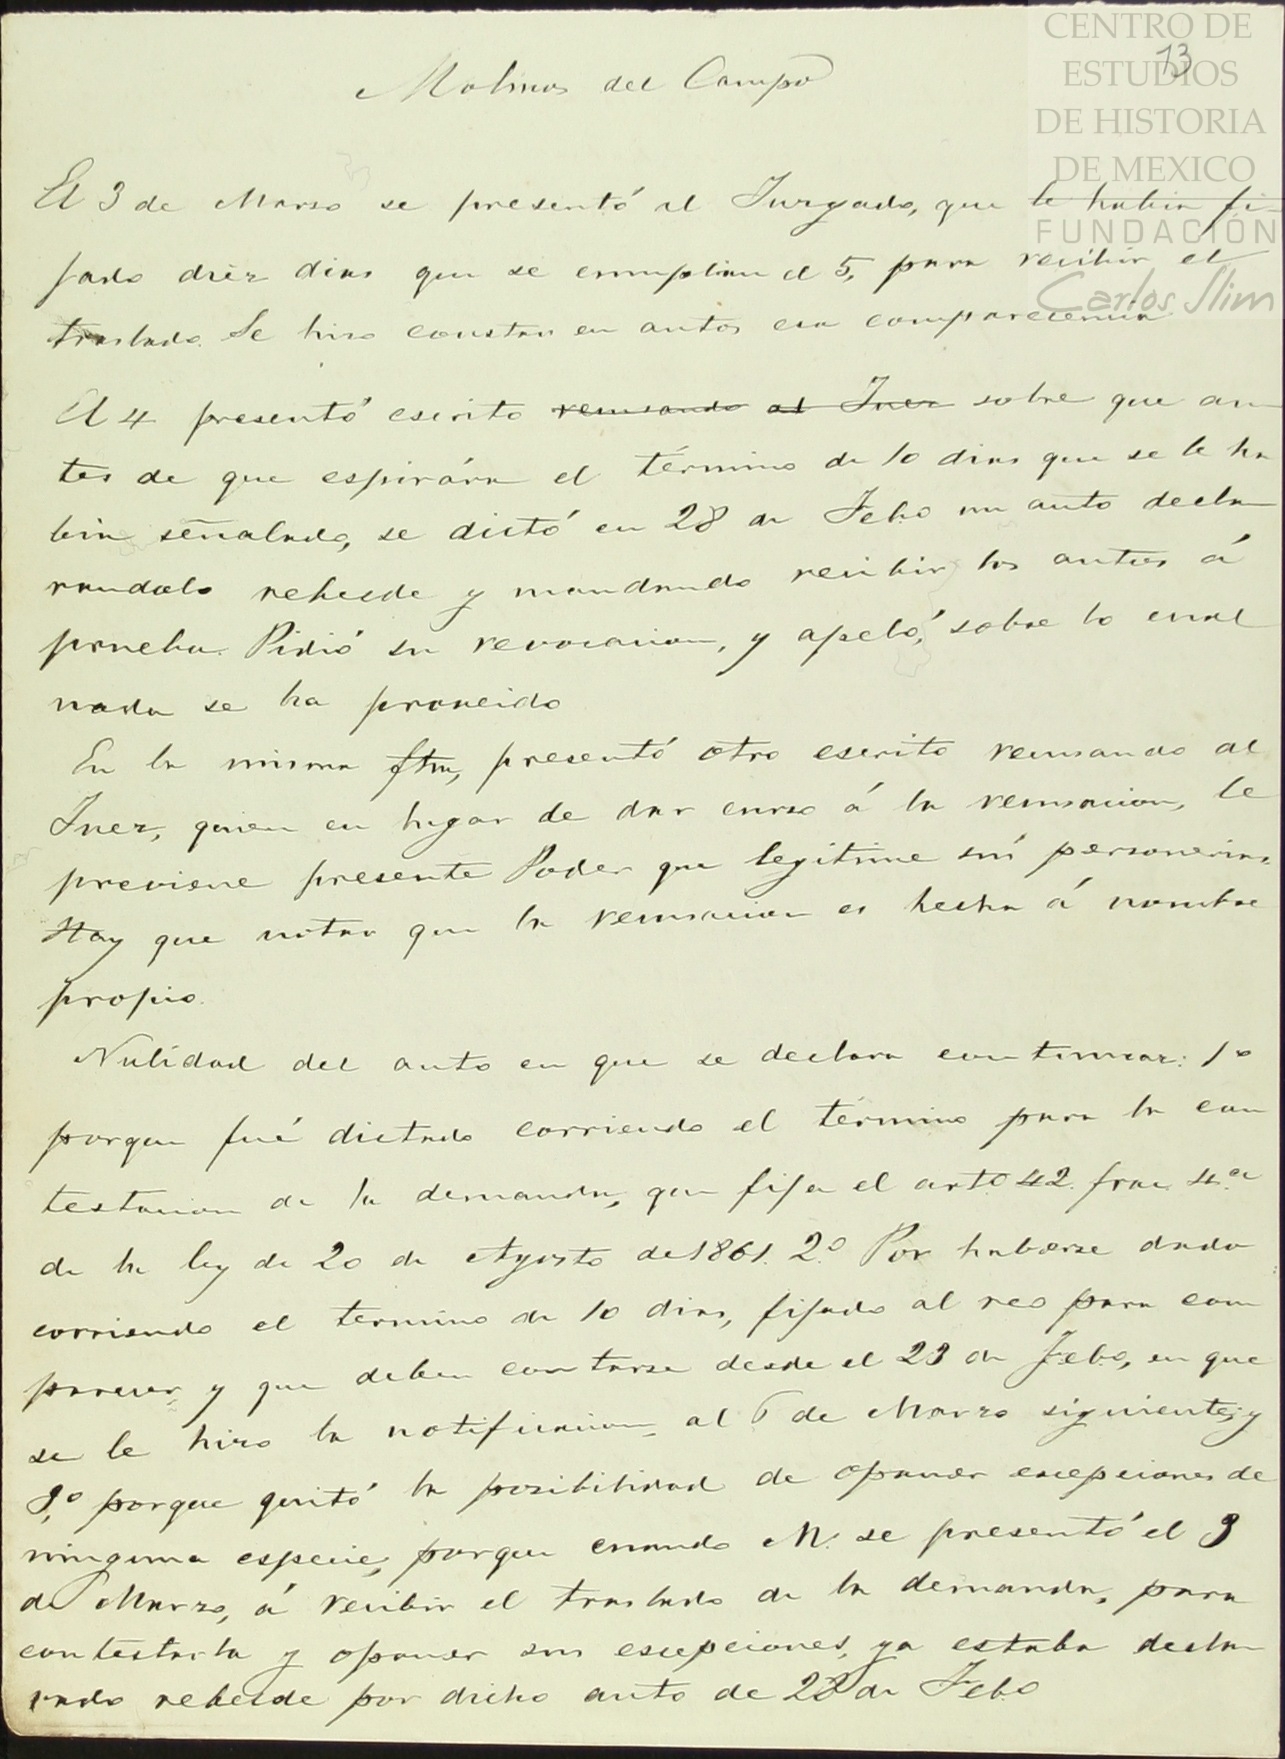 CENTRO DE
ESTUDIOS
DE HISTORIA
DE MEXICO
FUNDACIÓN
Carlos Slim
13
Molinos del Campo
El 3 de Marzo se presentó al Juzgado, que le habia fi-
jado diez dias que se cumplian el 5, para recibir el
traslado. Se hizo constar en autos esa comparecencia
El 4 presentó escrito recusando al Juez sobre que an
tes de que espirára el término de 10 dias que se le ha
bia señalado, se dictó en 28 de Febo un auto decla
randolo rebelde y mandando recibir los autos á
prueba. Pidió su revocacion, y apeló, sobre lo cual
nada se ha proveido
En la misma fha, presentó otro escrito recusando al
Juez, quien en lugar de dar curso á la recusacion, le
previene presente Poder que legitime su personeria.
Hay que notar que la recusacion es hecha á nombre
propio.
Nulidad del auto en que se declara contumaz: 1º
porque fué dictado corriendo el término para la con
testacion de la demanda, que fija el arto 42. frac. 4.a
de la ley de 20 de Agosto de 1861. 2.º Por haberse dado
corriendo el termino de 10 dias, fijado al reo para com
parecer, y que deben contarse desde el 23 de Febo, en que
se le hizo la notificacion, al 6 de Marzo siguiente; y
3.º porque quitó la posibilidad de oponer escepciones de
ninguna especie, porque cuando M. se presentó el 3
de Marzo, á recibir el traslado de la demanda, para
contestarla y oponer sus escepciones, ya estaba decla
rado rebelde por dicho auto de 28 de Febo